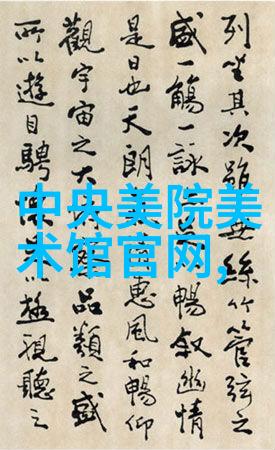 列坐其次雖無絲竹管弦之
盛一觴一詠暢敘幽情
是日也天朗惠風和暢仰
觀宇宙之大品類之盛
所以遊目騁懷以極視聽之
中央美院美
术馆官网,